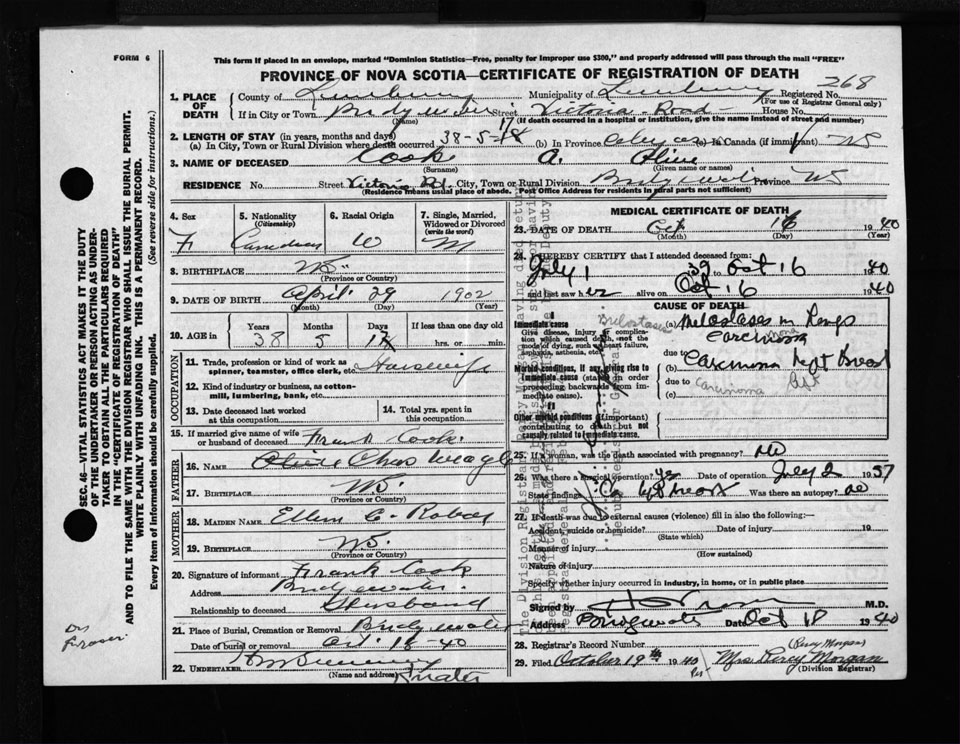 FORM 6
This form if placed in an envelope, marked "Dominion Statistics—Free, penalty for improper use $300," and properly addressed will pass through the mail "FREE"
PROVINCE OF NOVA SCOTIA—CERTIFICATE OF REGISTRATION OF DEATH
268
1. PLACE OF DEATH County of Lunenburg Municipality of Lunenburg Registered No.
(For use of Registrar General only)
If in City or Town Bridgewater Street Victoria Road House No.
(Name) (If death occurred in a hospital or institution, give the name instead of street and number)
2. LENGTH OF STAY (in years, months and days)
(a) In City, Town or Rural Division where death occurred 38-5-17 (b) In Province (c) In Canada (if immigrant) NS
3. NAME OF DECEASED Cook A. Olive
(Surname) (Given name or names)
RESIDENCE No. Street Victoria Rd. City, Town or Rural Division Bridgewater Province NS
(Residence means usual place of abode. Post Office Address for residents in rural parts not sufficient)
4. Sex
F
5. Nationality
(Citizenship)
Canadian
6. Racial Origin
W
7. Single, Married, Widowed or Divorced
(write the word)
M
8. BIRTHPLACE NS
(Province or Country)
9. DATE OF BIRTH April 29 1902
(Month) (Day) (Year)
10. AGE in Years Months Days If less than one day old
38 5 17 hrs. or min.
OCCUPATION
11. Trade, profession or kind of work as spinner, teamster, office clerk, etc. Housewife
12. Kind of industry or business, as cotton-mill, lumbering, bank, etc.
13. Date deceased last worked at this occupation
14. Total yrs. spent in this occupation
15. If married give name of wife or husband of deceased Frank Cook
FATHER
16. NAME Chas
17. BIRTHPLACE NS
(Province or Country)
MOTHER
18. MAIDEN NAME Ellen C.
19. BIRTHPLACE NS
(Province or Country)
20. Signature of informant Frank Cook
Address Bridgewater
Relationship to deceased Husband
21. Place of Burial, Cremation or Removal Bridgewater
Date of burial or removal Oct 18-40
22. UNDERTAKER
(Name and address)
MEDICAL CERTIFICATE OF DEATH
23. DATE OF DEATH Oct 16 1940
(Month) (Day) (Year)
24. I HEREBY CERTIFY that I attended deceased from:
July 1 '39 to Oct 16 1940
and last saw her alive on Oct 16 1940
CAUSE OF DEATH
Immediate cause (a) Metastases in Lungs
Give disease, injury or complication which caused death, not the mode of dying, such as heart failure, asphyxia, asthenia, etc.
Carcinoma
Morbid conditions, if any, giving rise to immediate cause (stated in order proceeding backwards from immediate cause).
due to (b) Carcinoma Right Breast
due to (c) Carcinoma Rgt
II
Other morbid conditions (if important) contributing to death but not causally related to immediate cause.
25. If a woman, was the death associated with pregnancy? No
26. Was there a surgical operation? Yes Date of operation July 2 1937
State findings Was there an autopsy? no
27. If death was due to external causes (violence) fill in also the following:—
Accident, suicide or homicide? Date of injury 19
(State which)
Manner of injury
(How sustained)
Nature of injury
Specify whether injury occurred in industry, in home, or in public place
Signed by M.D.
Address Bridgewater Date Oct 18 1940
28. Registrar's Record Number
(Percy Morgan)
29. Filed October 19th 1940 Per Mrs. Percy Morgan
(Division Registrar)
SEC. 46—VITAL STATISTICS ACT MAKES IT THE DUTY OF THE UNDERTAKER OR PERSON ACTING AS UNDERTAKER TO OBTAIN ALL THE PARTICULARS REQUIRED IN THE "CERTIFICATE OF REGISTRATION OF DEATH" AND TO FILE THE SAME WITH THE DIVISION REGISTRAR WHO SHALL ISSUE THE BURIAL PERMIT.
WRITE PLAINLY WITH UNFADING INK. THIS IS A PERMANENT RECORD.
Every item of information should be carefully supplied. (See reverse side for instructions.)
Dr
Fraser